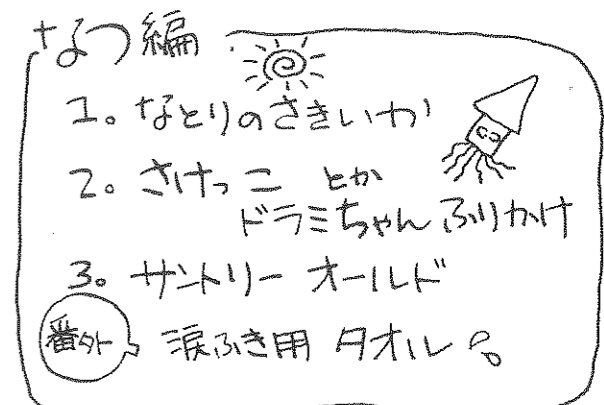 なつ編
1。なとりのさきいか
2。さけっこ とか
ドラミちゃんふりかけ
3。サントリー オールド
番外 涙ふき用 タオル。